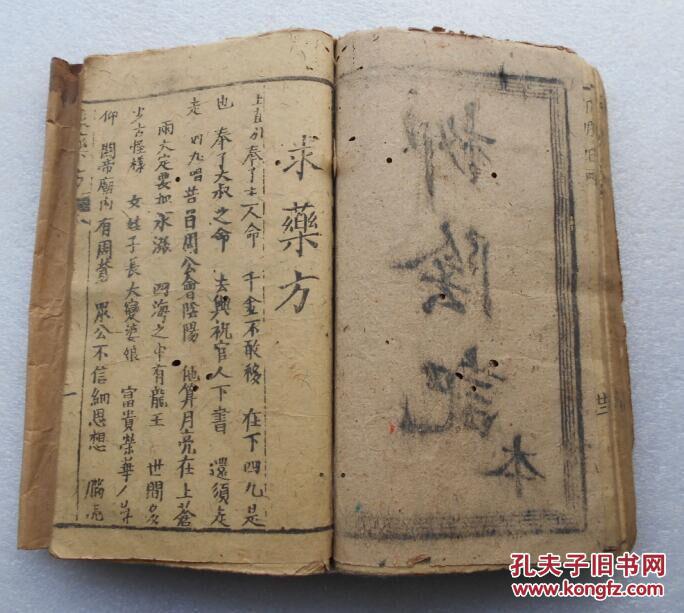 柳陰記
本
廿二
求藥方
上白引 奉了主人命 千金不敢移 在下四九是
也 奉了大叔之命 去與祝官人下書 還須走
走 四九唱昔日周公會陰陽 他算月亮在上蒼
雨大定要把水漲 四海之中有龍王 世間多
少古怪樣 女娃子長大變婆娘 富貴榮華人
仰 關帝廟內有周蒼 眾公不信細思想 腦壳
孔夫子旧书网
www.kongfz.com